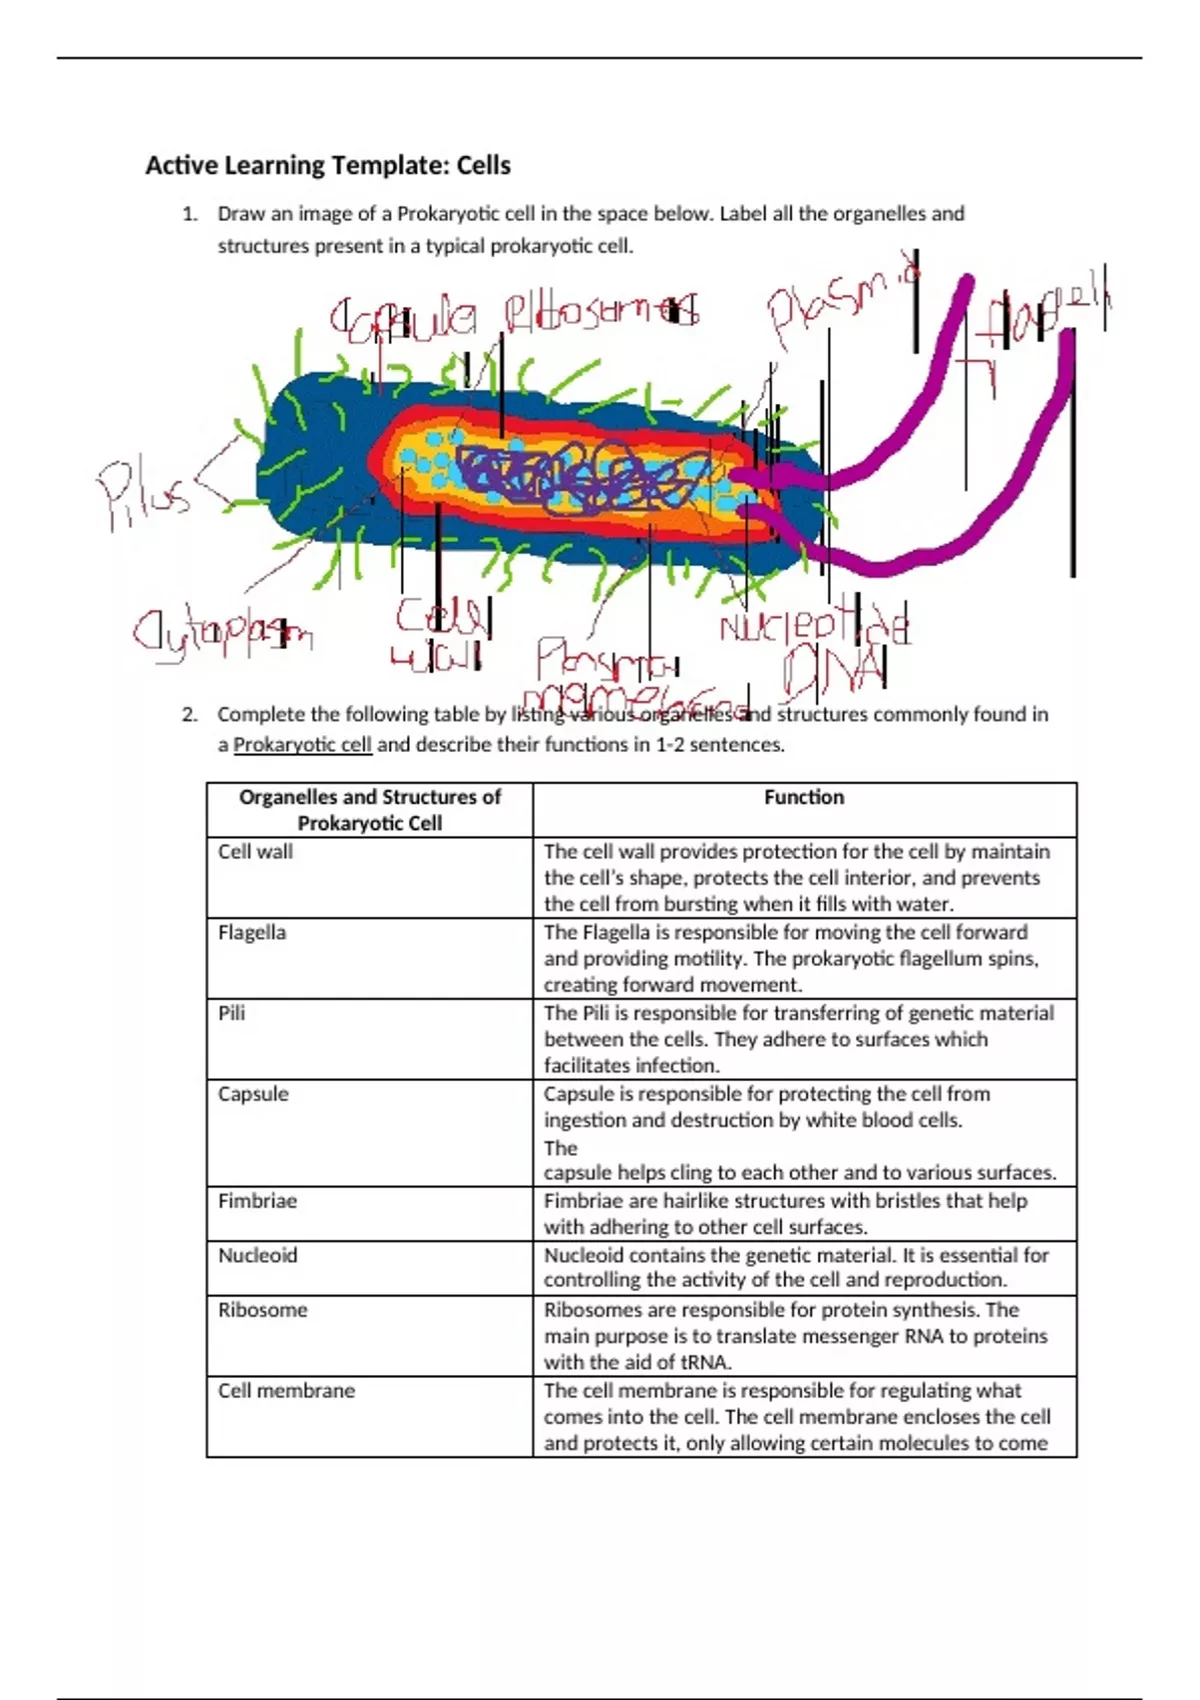 Active Learning Template: Cells
1. Draw an image of a Prokaryotic cell in the space below. Label all the organelles and
structures present in a typical prokaryotic cell.
Capsule Ribosomes Plasmid Flagell
Pilus
Cytoplasm Cell Nucleotide
wall Plasma DNA
2. Complete the following table by listing various organelles and structures commonly found in
a Prokaryotic cell and describe their functions in 1-2 sentences.
Organelles and Structures of
Prokaryotic Cell
Function
Cell wall
The cell wall provides protection for the cell by maintain
the cell’s shape, protects the cell interior, and prevents
the cell from bursting when it fills with water.
Flagella
The Flagella is responsible for moving the cell forward
and providing motility. The prokaryotic flagellum spins,
creating forward movement.
Pili
The Pili is responsible for transferring of genetic material
between the cells. They adhere to surfaces which
facilitates infection.
Capsule
Capsule is responsible for protecting the cell from
ingestion and destruction by white blood cells.
The
capsule helps cling to each other and to various surfaces.
Fimbriae
Fimbriae are hairlike structures with bristles that help
with adhering to other cell surfaces.
Nucleoid
Nucleoid contains the genetic material. It is essential for
controlling the activity of the cell and reproduction.
Ribosome
Ribosomes are responsible for protein synthesis. The
main purpose is to translate messenger RNA to proteins
with the aid of tRNA.
Cell membrane
The cell membrane is responsible for regulating what
comes into the cell. The cell membrane encloses the cell
and protects it, only allowing certain molecules to come